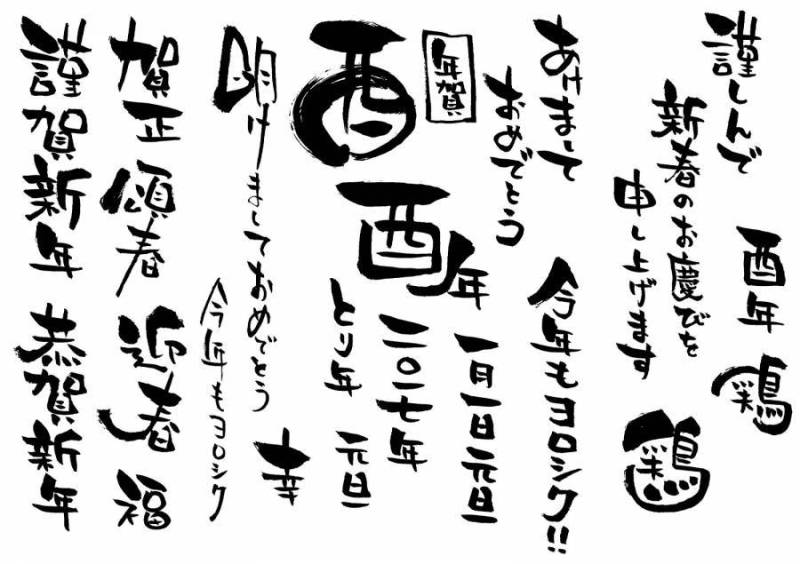 謹しんで
新春のお慶びを
申し上げます
酉年
鶏
鶏
あけまして
おめでとう
今年もヨロシク!!
年賀
酉
酉年
一月一日元旦
二〇一七年
とり年
元旦
明けましておめでとう
今年もヨロシク
幸
賀正
頌春
迎春
福
謹賀新年
恭賀新年